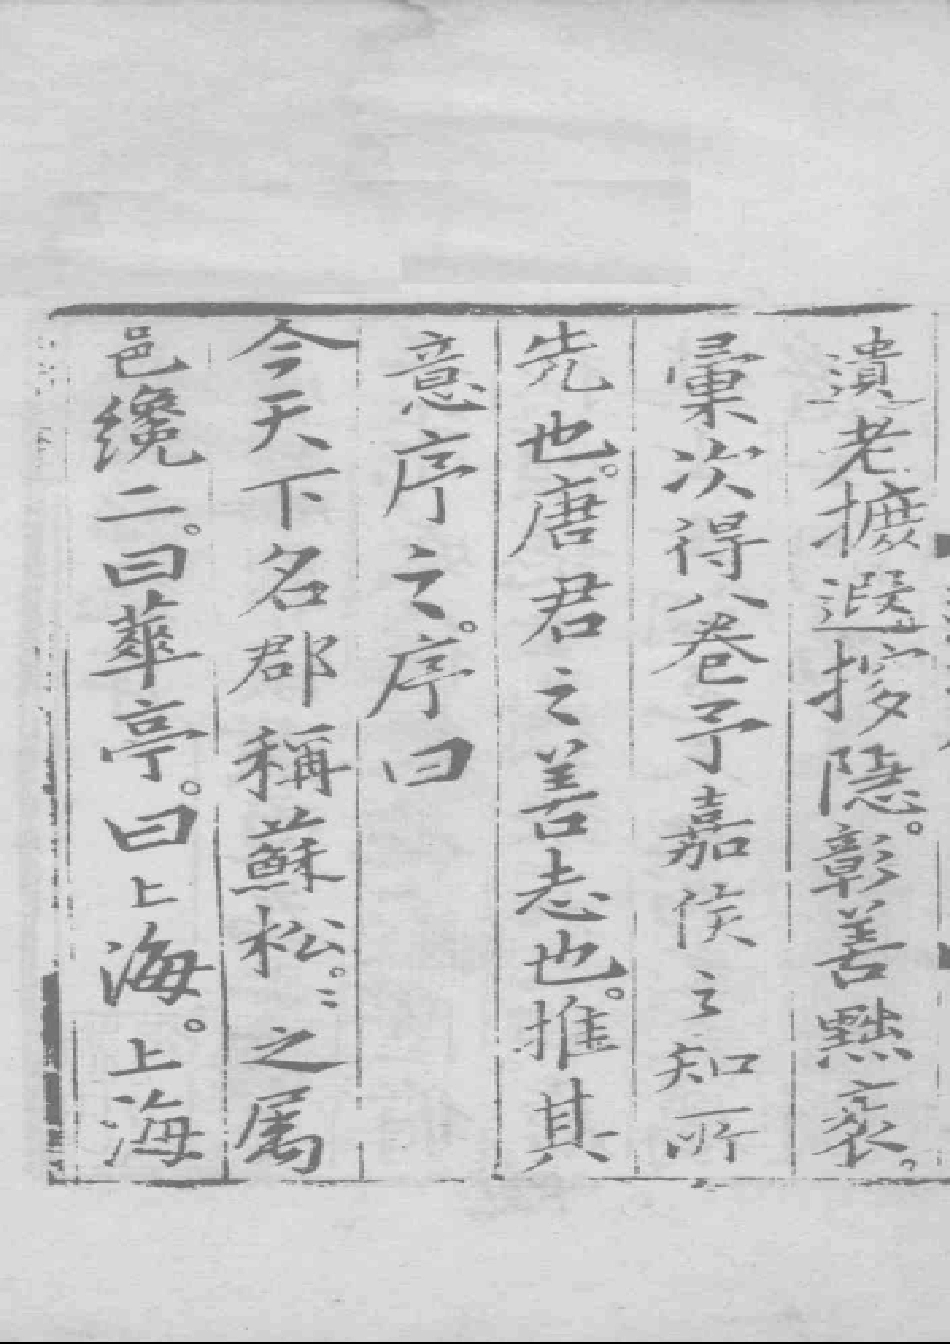 遺老摭遐掇隱。彰善黜衺。
彙次得八卷予嘉侯之知所
先也。唐君之善志也。推其
意序之。序曰
今天下名郡稱蘇松。〻之属
邑纔二。曰華亭。曰上海。上海